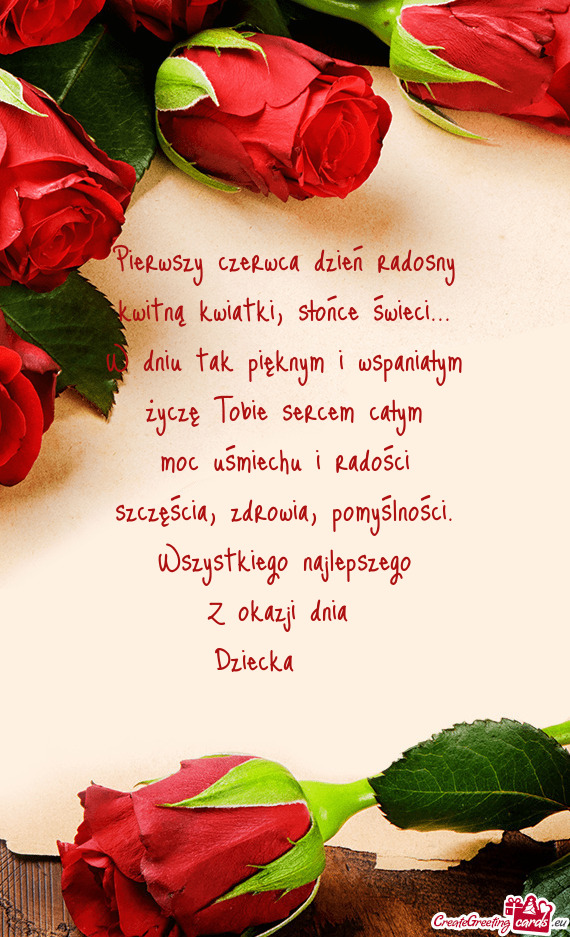 Pierwszy czerwca dzień radosny
kwitną kwiatki, słońce świeci...
W dniu tak pięknym i wspaniałym
życzę Tobie sercem całym
moc uśmiechu i radości
szczęścia, zdrowia, pomyślności.
Wszystkiego najlepszego
Z okazji dnia
Dziecka
CreateGreetingcards.eu